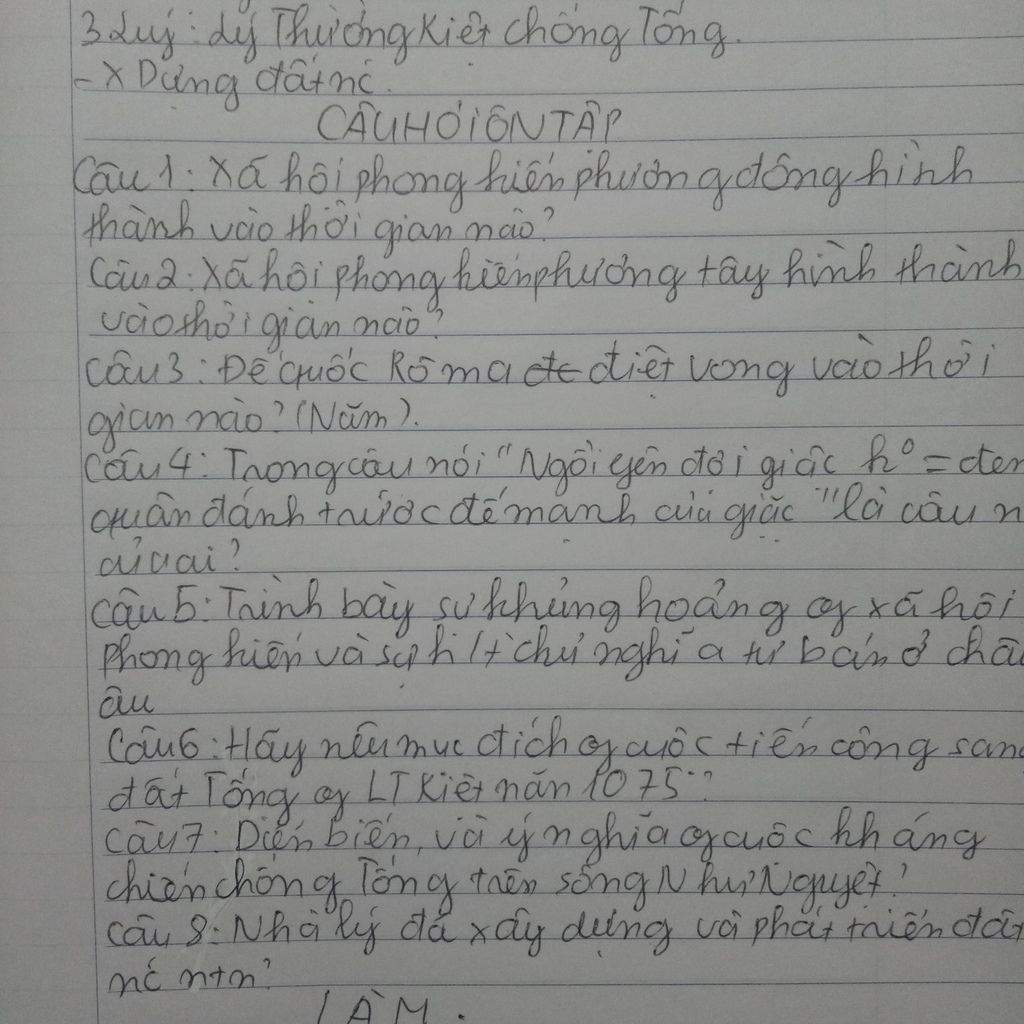 3 Lý: Lý Thường Kiệt chống Tống.
- X Dựng đất nc.
CÂU HỎI ÔN TẬP
Câu 1: Xã hội phong kiến phương đông hình
thành vào thời gian nào?
Câu 2: Xã hội phong kiến phương tây hình thành
vào thời gian nào?
Câu 3: Đế quốc Rôma diệt vong vào thời
gian nào? (Năm).
Câu 4: Trong câu nói "Ngồi yên đợi giặc k° = đem
quân đánh trước để mạnh của giặc" là câu n
của ai?
Câu 5: Trình bày sự khủng hoảng of xã hội
phong kiến và sự h/t chủ nghĩa tư bản ở châu
âu
Câu 6: Hãy nêu mục đích of cuộc tiến công sang
đất Tống of LT Kiệt năm 1075?
Câu 7: Diễn biến, và ý nghĩa of cuộc kháng
chiến chống Tống trên sông Như Nguyệt?
Câu 8: Nhà lý đã xây dựng và phát triển đất
nc ntn?
LÀM.